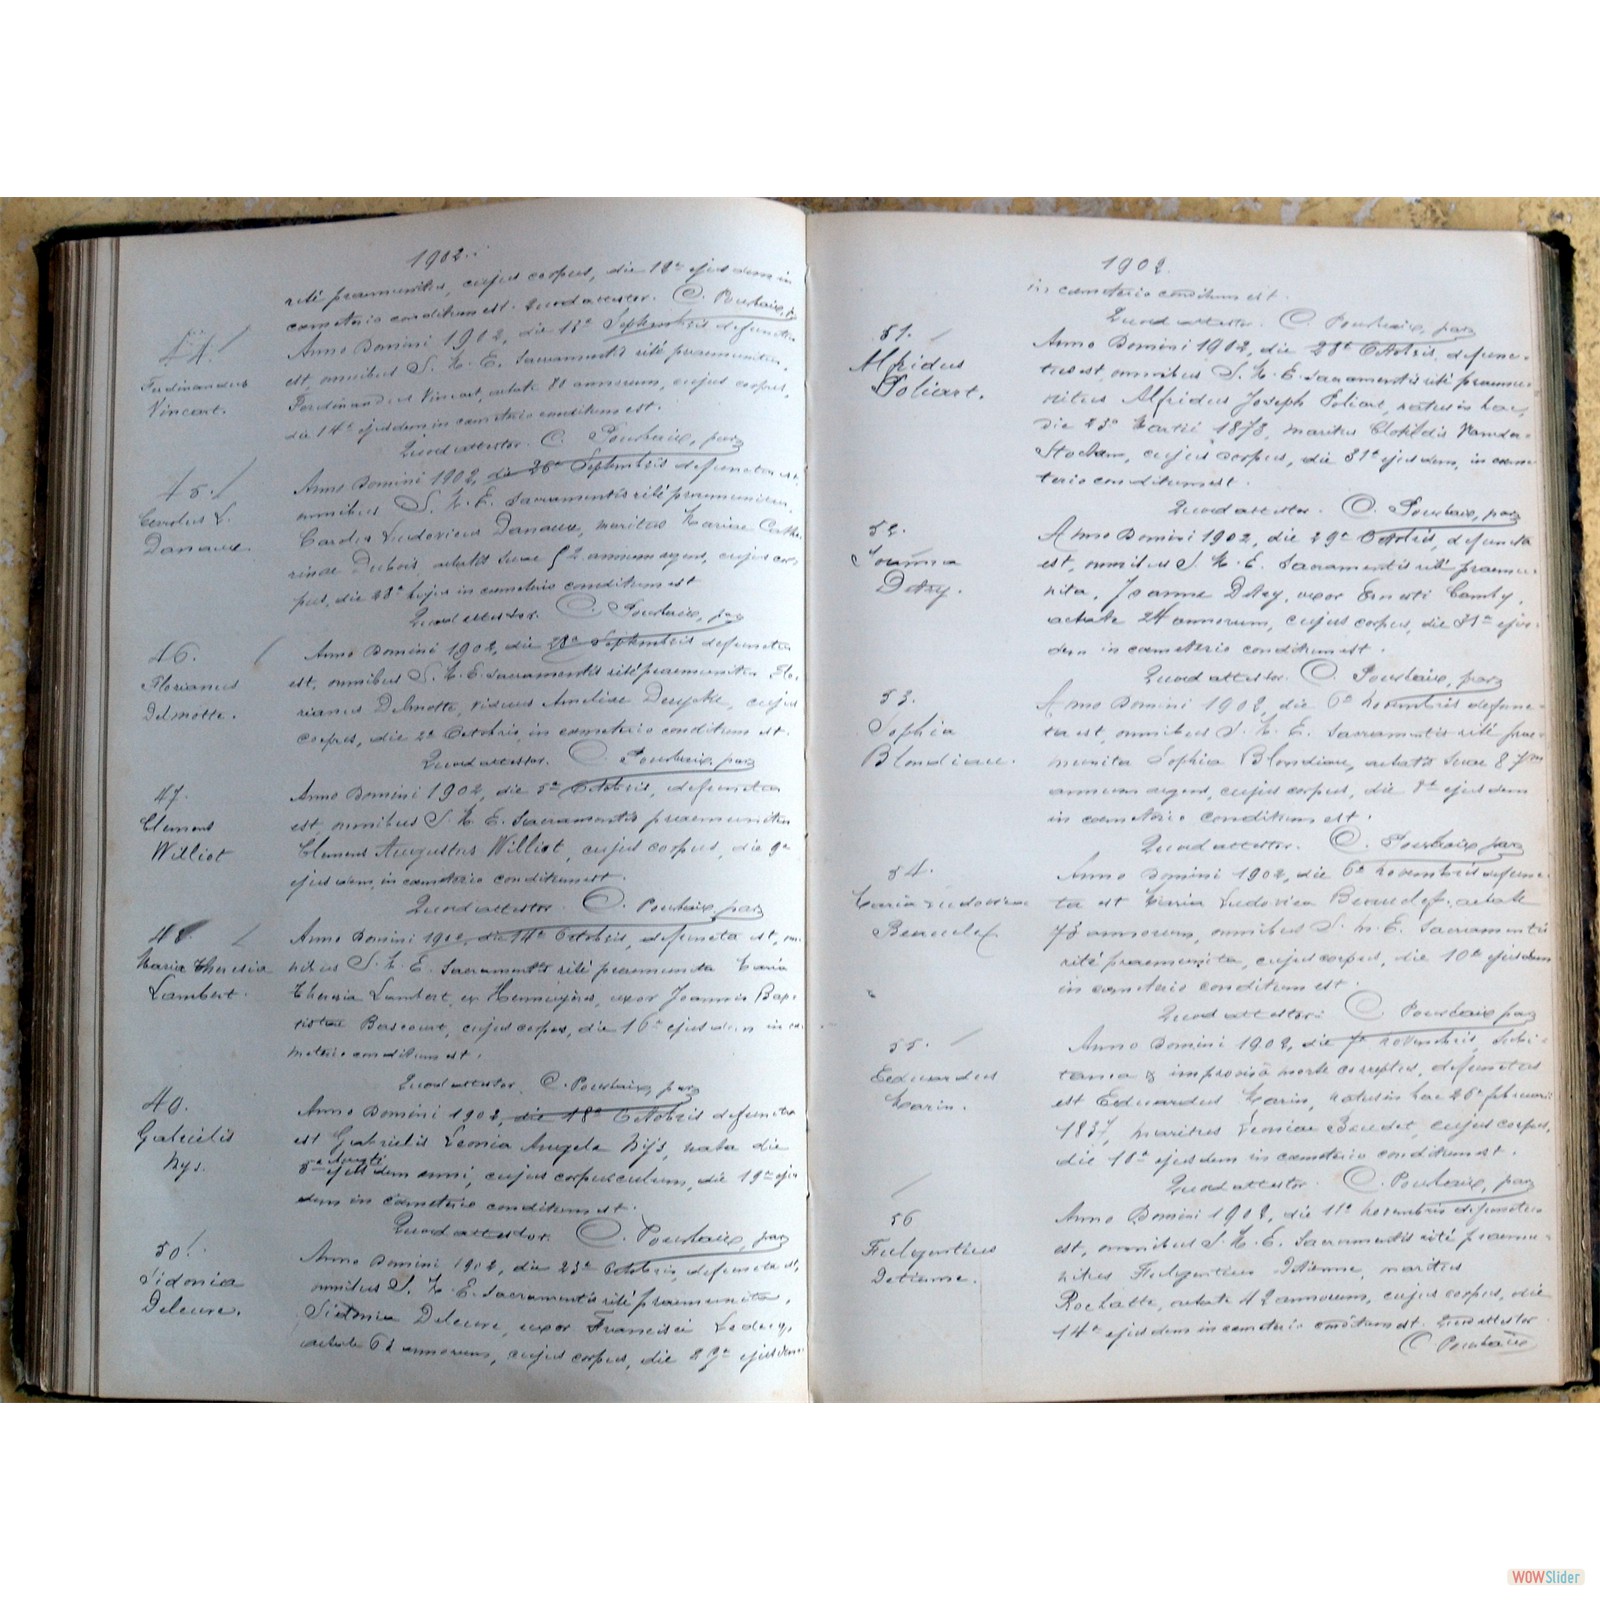 1902.
rité praemunitus, cujus corpus, die 18a ejusdem in
cœmeterio conditum est. Quod attestor. C. Pourbaix, p
44.
Ferdinandus
Vincart.
Anno Domini 1902, die 13a Septembris defunctus
est, omnibus S. M. E. Sacramentis rité praemunitus,
Ferdinandus Vincart, aetate 80 annorum, cujus corpus,
die 14a ejusdem in cœmeterio conditum est.
Quod attestor. C. Pourbaix, par
45.
Carolus L.
Danaux.
Anno Domini 1902, die 26a Septembris defunctus est,
omnibus S. M. E. Sacramentis rité praemunitus,
Carolus Ludovicus Danaux, maritus Mariae Cathe
rinae Dubois, aetatis suae 52 annum agens, cujus cor
pus, die 28a hujus in cœmeterio conditum est
Quod attestor. C. Pourbaix, par
46.
Florianus
Delmotte.
Anno Domini 1902, die 28a Septembris defunctus
est, omnibus S. M. E. Sacramentis rité praemunitus Flo
rianus Delmotte, viduus Ameliae Deryche, cujus
corpus, die 2a Octobris, in cœmeterio conditum est.
Quod attestor. C. Pourbaix, par
47.
Clemens
Williot
Anno Domini 1902, die 5a Octobris, defunctus
est, omnibus S. M. E. Sacramentis praemunitus
Clemens Augustus Williot, cujus corpus, die 9a
ejusdem, in cœmeterio conditum est.
Quod attestor C. Pourbaix, par
48.
Maria Theresia
Lambert.
Anno Domini 1902, die 14a Octobris, defuncta est, om
nibus S. M. E. Sacramentis rité praemunita Maria
Theresia Lambert, ex Hennuyères, uxor Joannis Bap
tistae Bascourt, cujus corpus, die 16a ejusdem in cœ
meterio conditum est.
Quod attestor C. Pourbaix, par
49.
Gabrielis
Nys.
Anno Domini 1902, die 18a Octobris defuncta
est Gabrielis Leonia Angela Nijs, nata die
Augusti
5a ejusdem anni, cujus corpusculum, die 19a ejus
dem in cœmeterio conditum est.
Quod attestor. C. Pourbaix, par
50.
Sidonia
Deleuve.
Anno Domini 1902, die 23a Octobris, defuncta est,
omnibus S. M. E. Sacramentis rité praemunita,
Sidonia Deleuve, uxor Francisci
aetate 62 annorum, cujus corpus, die 29a ejusdem
1902.
in cœmeterio conditum est.
Quod attestor. C. Pourbaix, par
51.
Alfridus
Poliart.
Anno Domini 1902, die 28a Octobris, defunc-
tus est, omnibus S. M. E. Sacramentis rité praemu-
nitus Alfridus Joseph Poliart, natus in hac,
die 23a Martii 1878, maritus Clotildis Vander
Stocken, cujus corpus, die 31a ejusdem, in cœme
terio conditum est.
Quod attestor. C. Pourbaix, par
52.
Joanna
Detry.
Anno Domini 1902, die 29a Octobris, defuncta
est, omnibus S. M. E. Sacramentis rité praemu-
nita, Joanna Detry, uxor Ernesti Camby,
aetate 24 annorum, cujus corpus, die 31a ejus-
dem in cœmeterio conditum est.
Quod attestor. C. Pourbaix, par
53.
Sophia
Blondiau.
Anno Domini 1902, die 6a Novembris defunc-
ta est, omnibus S. M. E. Sacramentis rité prae-
munita Sophia Blondiau, aetatis suae 87m
annum agens, cujus corpus, die 8a ejusdem
in cœmeterio conditum est.
Quod attestor. C. Pourbaix par
54.
Maria Ludovica
Anno Domini 1902, die 6a Novembris defunc-
ta est Maria Ludovica aetate
73 annorum, omnibus S. M. E. Sacramentis
rité praemunita, cujus corpus, die 10a ejusdem
in cœmeterio conditum est.
Quod attestor. C. Pourbaix par
55.
Eduardus
Marin.
Anno Domini 1902, die 7a Novembris, subi-
tanea & improvisâ morte correptus, defunctus
est Eduardus Marin, natus in hac 26a februarii
1837, maritus Leoniae Baudet, cujus corpus,
die 10a ejusdem in cœmeterio conditum est.
Quod attestor. C. Pourbaix, par
56
Fulgentius
Detienne.
Anno Domini 1902, die 11a Novembris defunctus
est, omnibus S. M. E. Sacramentis rité praemu-
nitus Fulgentius Detienne, maritus
Rochatte, aetate 42 annorum, cujus corpus, die
14a ejusdem in cœmeterio conditum est. Quod attestor
C Pourbaix
WOWSlider